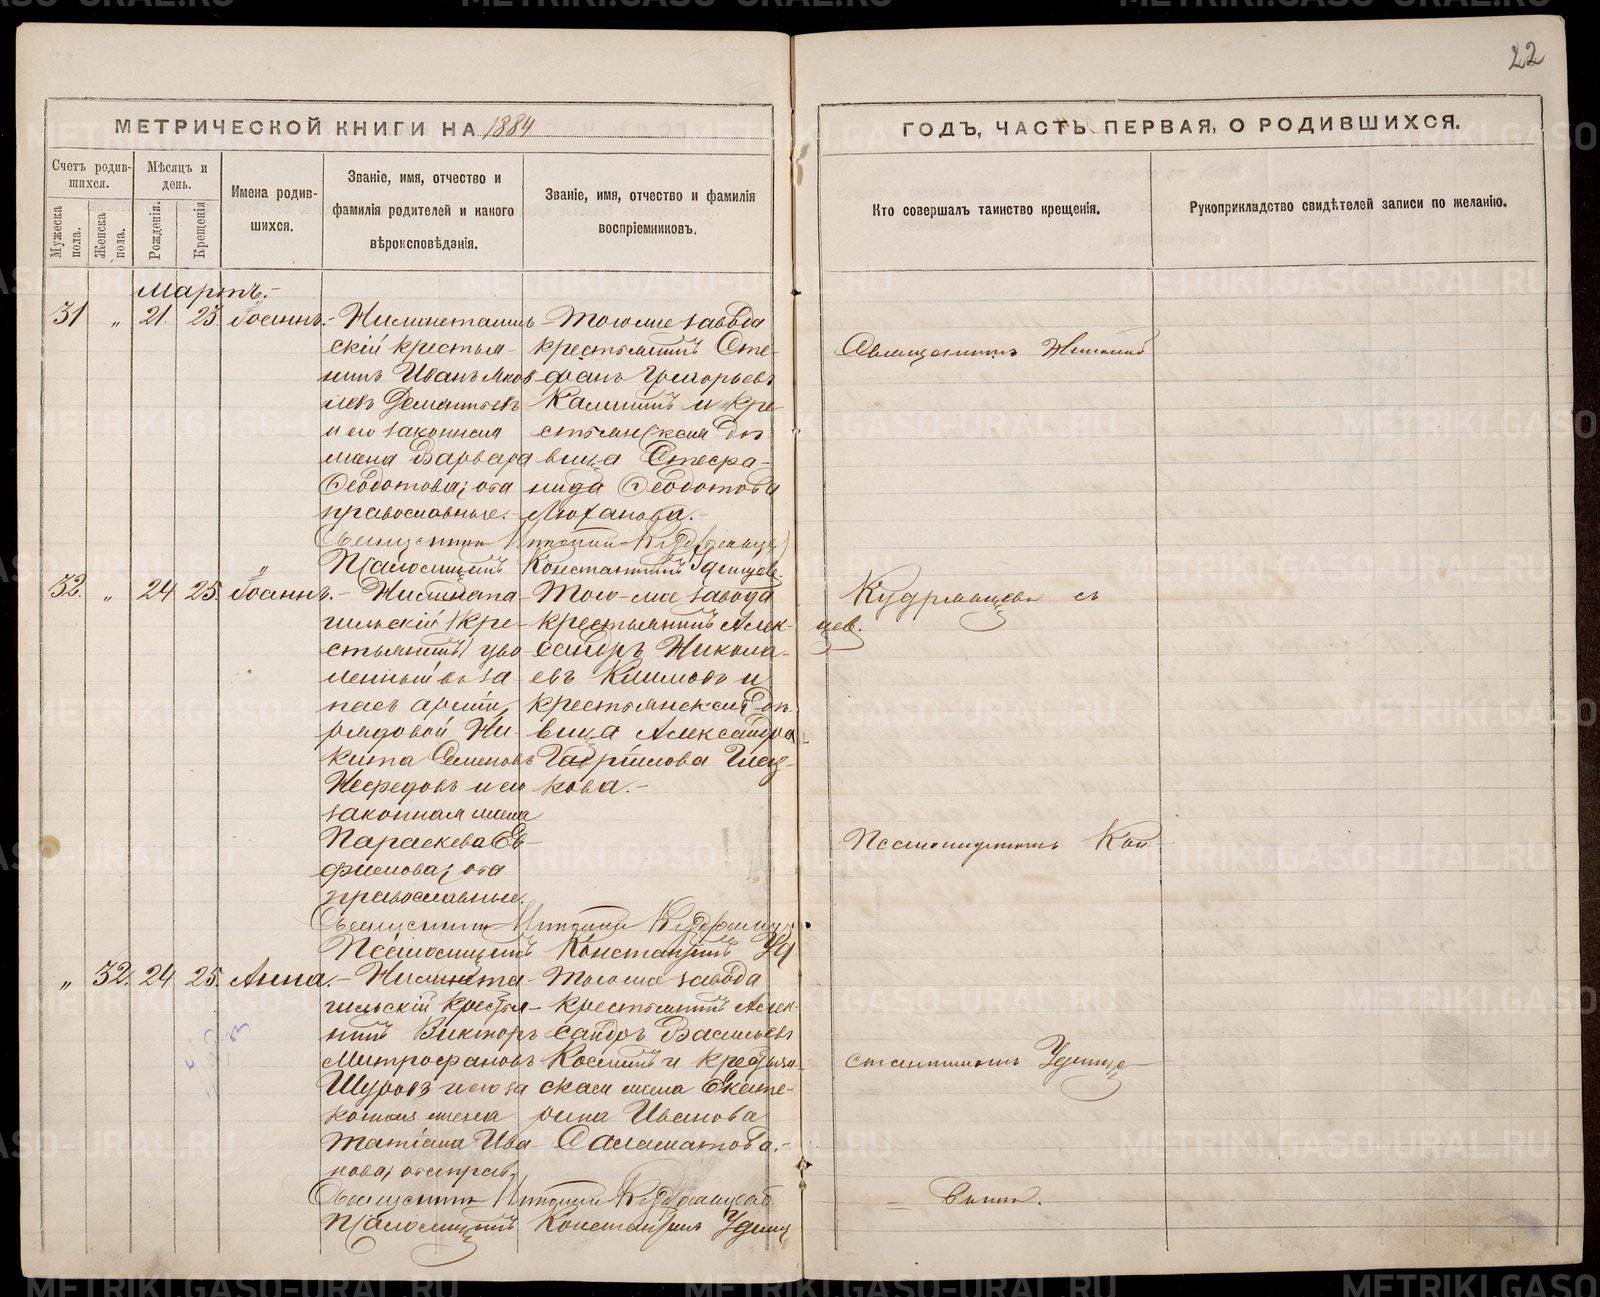 22
МЕТРИЧЕСКОЙ КНИГИ НА 1884
ГОДЪ, ЧАСТЬ ПЕРВАЯ, О РОДИВШИХСЯ.
Счетъ родив-
шихся.
Мужеска пола.
Женска пола.
Мѣсяцъ и
день.
Рожденія.
Крещенія
Имена родив-
шихся.
Званіе, имя, отчество и
фамилія родителей и какого
вѣроисповѣданія.
Званіе, имя, отчество и фамилія
воспріемниковъ.
Кто совершалъ таинство крещенія.
Рукоприкладство свидѣтелей записи по желанію.
Мартъ.-
31 " 21. 23. Іоаннъ.-
скій крестья-
нинъ Иванъ Яков
левъ Дементьевъ
и его законная
жена Варвара
Ѳеодотова; оба
православные.-
Тогоже завода
крестьянинъ Сте-
фанъ Григорьевъ
Калининъ и кре-
стьянская дѣ
вица
Ѳеодотова
Священникъ
Псаломщикъ Константинъ Удинцев
32. " 24 25. Іоаннъ.- Нижнета-
гильскій (кре-
стьянинъ) уво
ленный въ за
пасъ арміи,
рядовой Ни-
кита Семеновъ
Нефедовъ и его
законная жена
Параскева Ев-
фимова; оба
православные.
Того-же завода
крестьянинъ Алек-
сандръ Никола-
евъ Климовъ и
крестьянская дѣ-
вица Александра
Гаврилова Глаз-
кова.-
Священникъ
Псаломщикъ Константинъ Уд
" 32. 24 25. Анна.- Нижнета-
гильскій крестья-
нинъ Викторъ
Митрофановъ
Щуровъ и его за
конная жена
Татіана Ива
нова, оба прав.
Тогоже завода
крестьянинъ Алек-
сандръ Васильевъ
Косинъ и крестьян-
ская жена Екате-
рина Иванова
Саламатова.-
Священникъ
Псаломщикъ Константинъ Удинц
Священникъ
Кудрявцевъ съ
цев.
Псаломщикомъ Кон
стантиномъ Удинце
METRIKI.GASO-URAL.RU